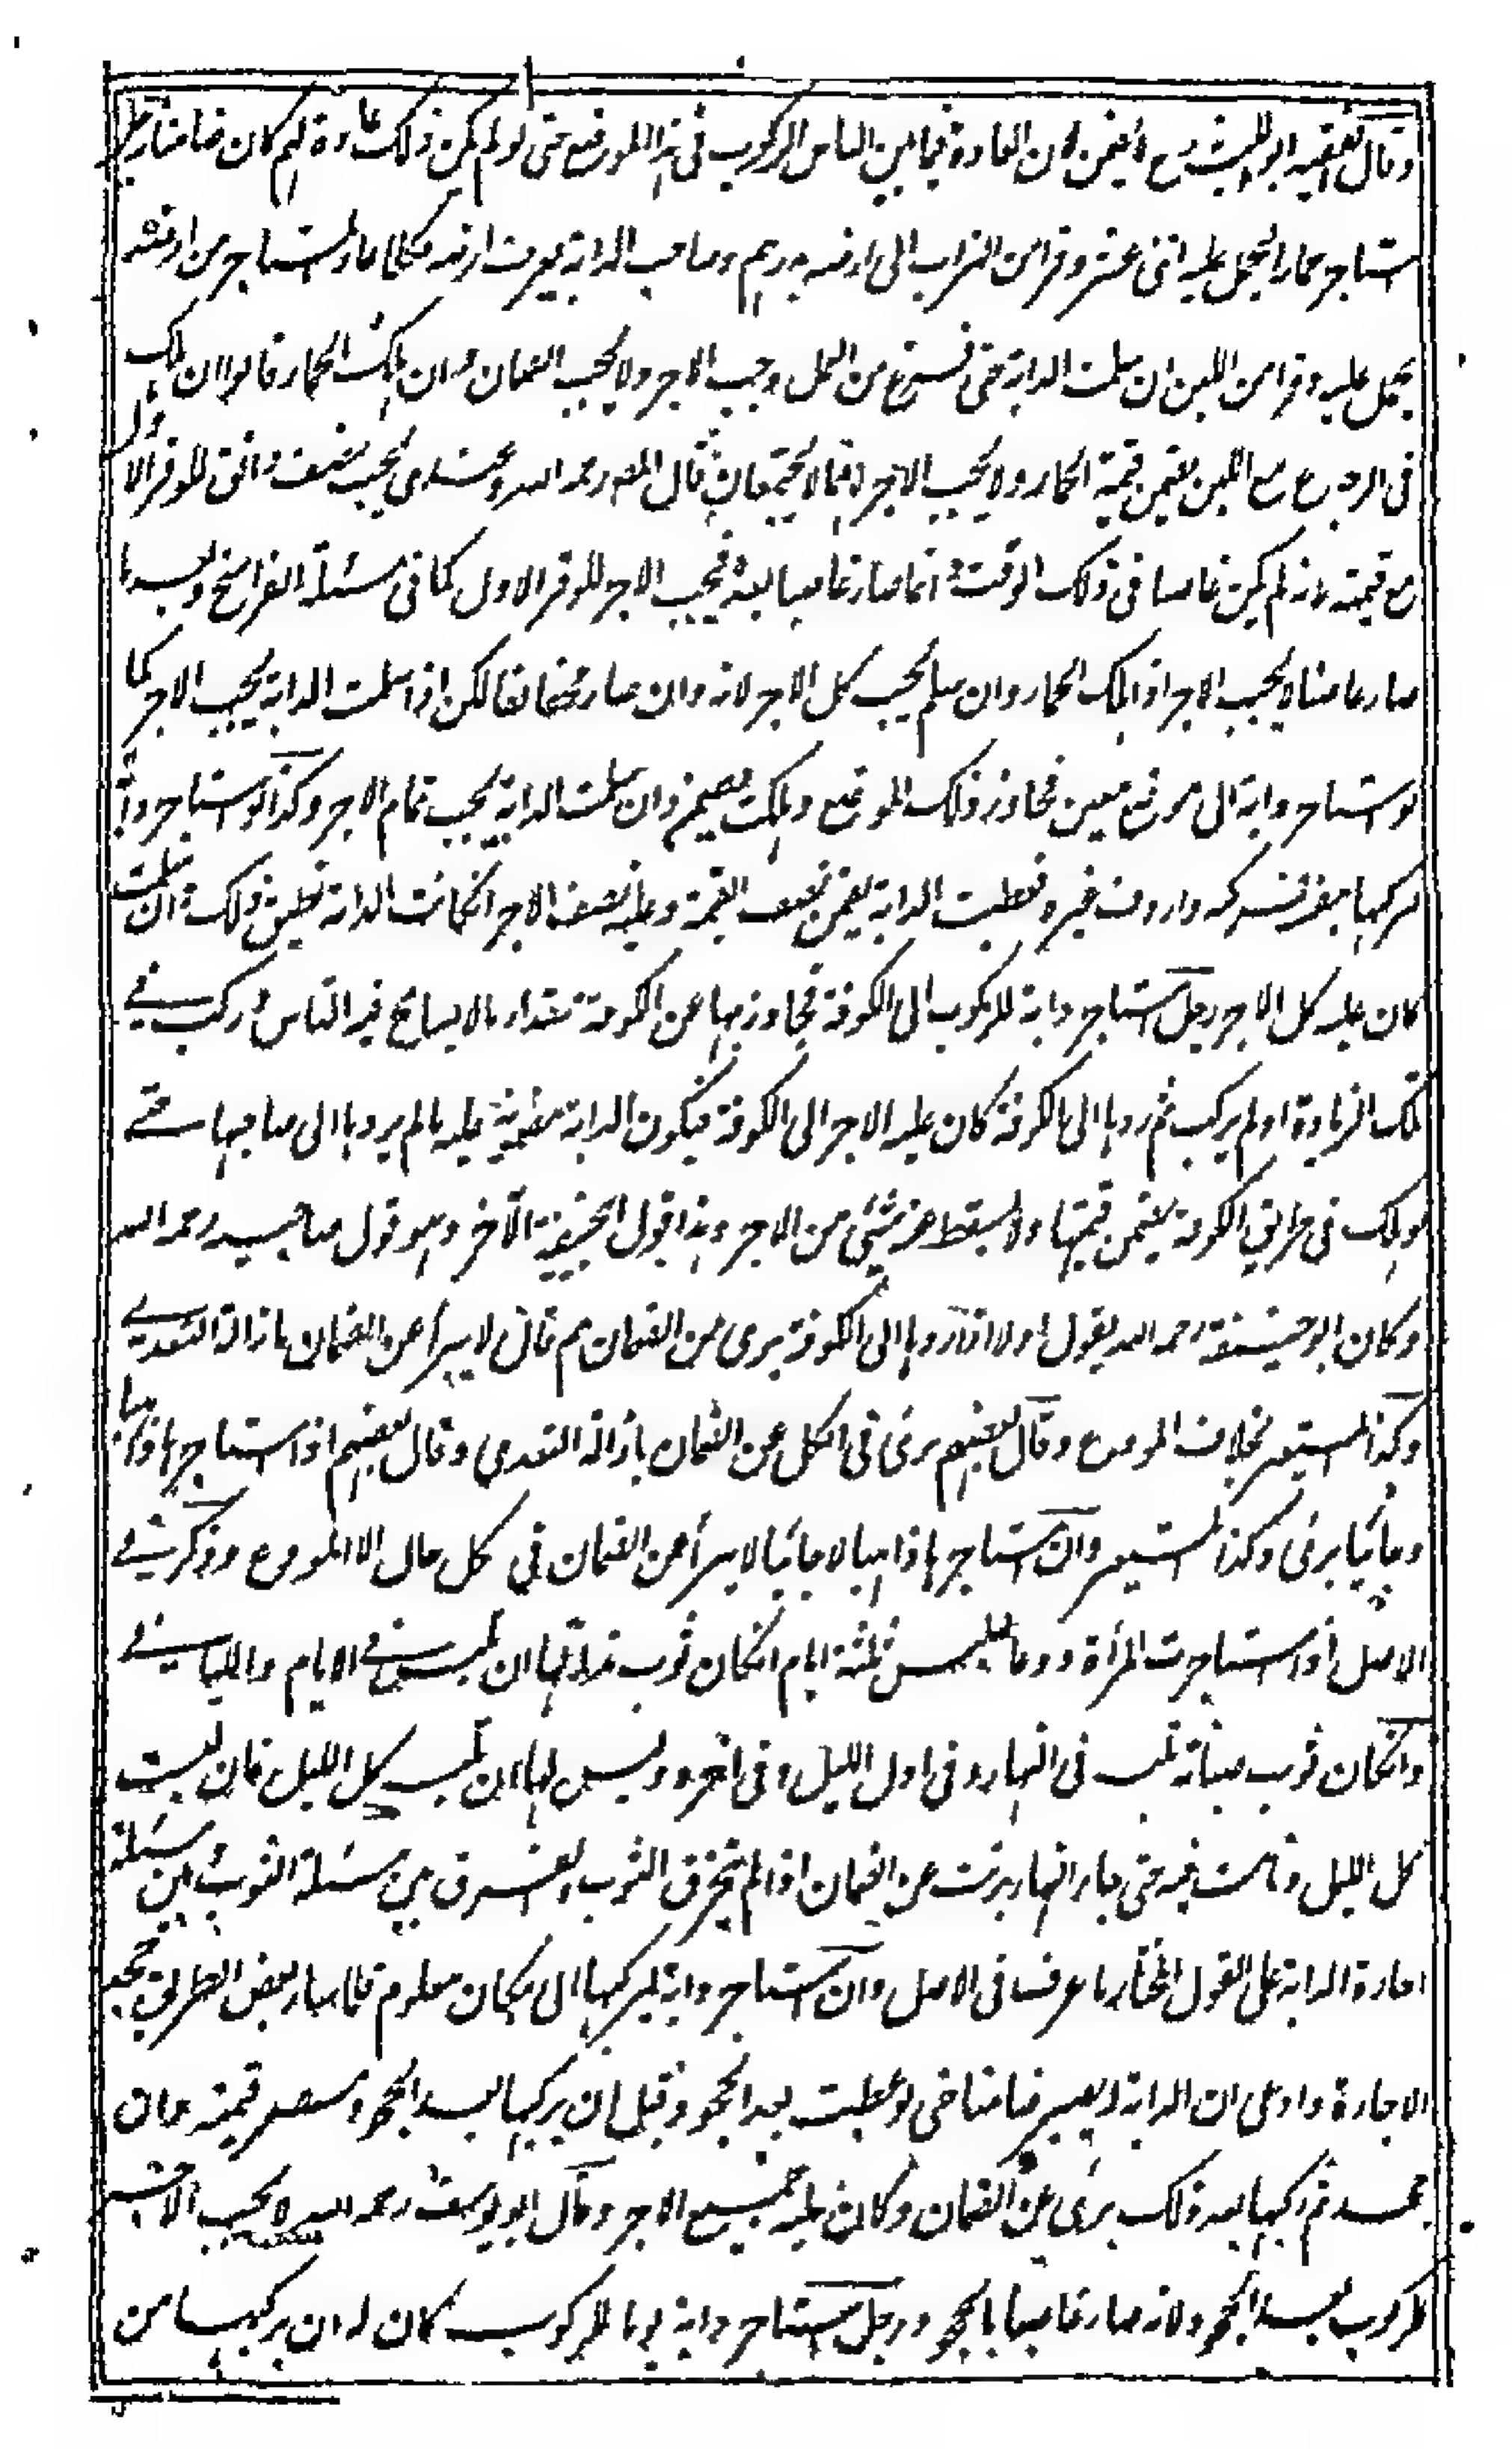 وقال الفقيه ابو الليث رح لا يضمن لان العادة فيما بين الناس الركوب فى هذا الموضع حتى لو لم يكن ذلك عادة لهم كان ضامنا رجل
استاجر حمارا ليحمل عليه اثنى عشر وقرا من التراب الى ارضه بدرهم وصاحب الدابة يعرف ارضه فكلما عاد المستاجر من ارضه
يحمل عليه وقرا من اللبن ان سلمت الدابة حتى فرغ من العمل وجب الاجر ولا يجب الضمان وان هلك الحمار قالوا ان هلك
فى الرجوع مع اللبن يضمن قيمة الحمار ولا يجب الاجر لانهما لا يجتمعان قال المصـ رحمه الله وعندى يجب نصف دانق للوقر الاول
مع قيمته لانه لم يكن غاصبا فى ذلك الوقت انما صار غاصبا بعده فيجب الاجر للوقر الاول كما فى مسئلة الفراسخ وبعد ما
صار ضامنا لا يجب الاجر اذا هلك الحمار وان سلم يجب كل الاجر لانه وان صار مخالفا لكن اذا سلمت الدابة يجب الاجر كما
لو استاجر دابة الى موضع معين فجاوز ذلك الموضع وهلكت يضمن وان سلمت الدابة يجب تمام الاجر وكذا لو استاجر دابة
ليركبها بنفسه فركب واردف غيره فعطبت الدابة يضمن نصف القيمة وعليه نصف الاجر انكانت الدابة تطيق ذلك وان سلمت
كان عليه كل الاجر رجل استاجر دابة للركوب الى الكوفة فجاوز بها عن الكوفة مقدار ما لا يسامح فيه الناس وركب فى
تلك الزيادة او لم يركب ثم ردها الى الكوفة كان عليه الاجر الى الكوفة فيكون الدابة مضمونة عليه ما لم يردها الى صاحبها حتى
لو هلك فى طريق الكوفة يضمن قيمتها ولا يسقط عنه شئ من الاجر وهذا قول ابيحنيفة الآخر وهو قول صاحبيه رحمه الله
وكان ابو حنيفة رحمه الله يقول اولا اذا ردها الى الكوفة برى من الضمان ثم قال لا يبرأ عن الضمان بازالة التعدى
وكذا المستعير بخلاف المودع وقال بعضهم برئ فى الكل عن الضمان بازالة التعدى وقال بعضهم اذا استاجرها ذاهبا
وجائيا برئ وكذا المستعير وان استاجرها ذاهبا لا جائيا لا يبرأ عن الضمان فى كل حال الا المودع وذكر فى
الاصل اذا استاجرت المرأة درعا لتلبس ثلثة ايام انكان ثوب بذلة لها ان تلبس فى الايام والليالى
وانكان ثوب صيانة تلبس فى النهار وفى اول الليل وفى آخره وليس لها ان تلبس كل الليل فان لبست
كل الليل ونامت فيه حتى جاء النهار برئت عن الضمان اذا لم يتخرق الثوب والفرق بين مسئلة الثوب وبين مسئلة
اجارة الدابة على القول المختار ما عرف فى الاصل وان استاجر دابة ليركبها الى مكان معلوم فلما سار بعض الطريق جحد
الاجارة وادعى ان الدابة له يصير ضامنا حتى لو عطبت بعد الجحود وقبل ان يركبها بعد الجحود يضمن قيمته فان
جحد ثم ركبها بعد ذلك برئ عن الضمان وكان عليه جميع الاجر وقال ابو يوسف رحمه الله لا يجب الاجر
للركوب بعد الجحود لانه صار غاصبا بالجحود ورجل استاجر دابة يوما للركوب كان له ان يركبها من